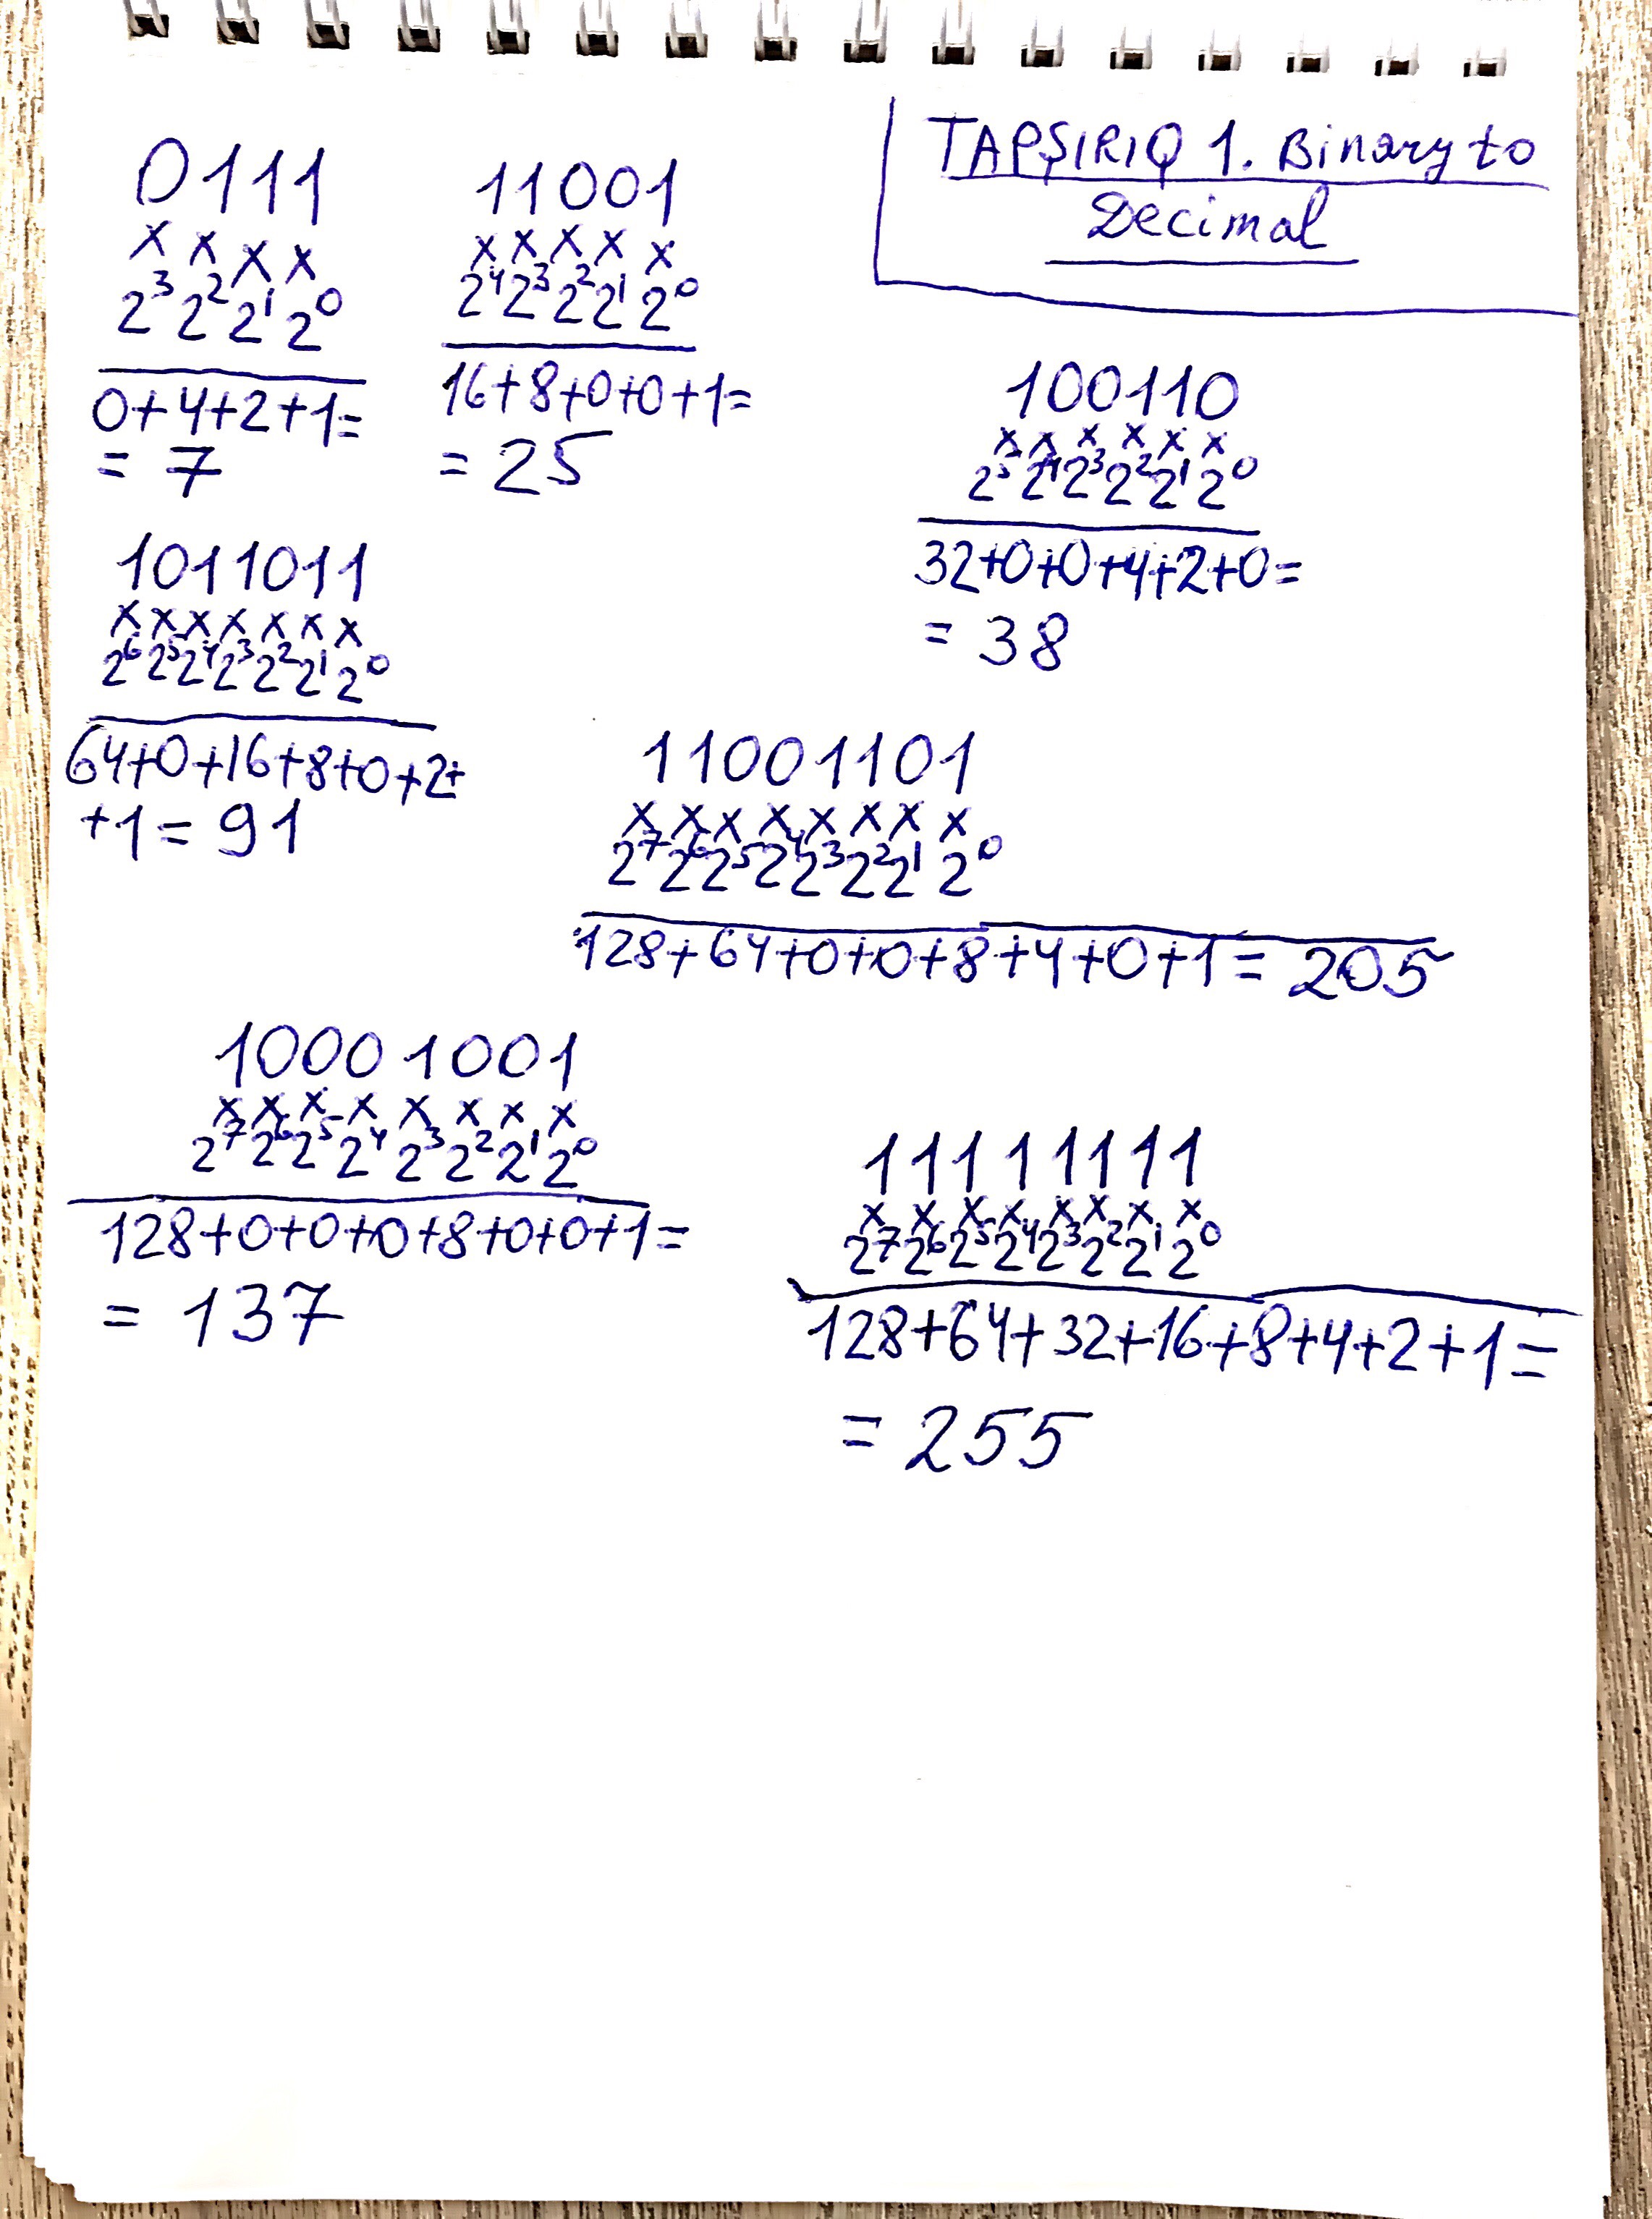 TAPŞIRIQ 1. Binary to
Decimal
0111
x x x x
2³ 2² 2¹ 2⁰
0+4+2+1=
= 7
11001
x x x x x
2⁴ 2³ 2² 2¹ 2⁰
16+8+0+0+1=
= 25
100110
x x x x x x
2⁵ 2⁴ 2³ 2² 2¹ 2⁰
32+0+0+4+2+0=
= 38
1011011
x x x x x x x
2⁶ 2⁵ 2⁴ 2³ 2² 2¹ 2⁰
64+0+16+8+0+2+
+1 = 91
11001101
x x x x x x x x
2⁷ 2⁶ 2⁵ 2⁴ 2³ 2² 2¹ 2⁰
128+64+0+0+8+4+0+1= 205
10001001
x x x x x x x x
2⁷ 2⁶ 2⁵ 2⁴ 2³ 2² 2¹ 2⁰
128+0+0+0+8+0+0+1=
= 137
11111111
x x x x x x x x
2⁷ 2⁶ 2⁵ 2⁴ 2³ 2² 2¹ 2⁰
128+64+32+16+8+4+2+1=
= 255